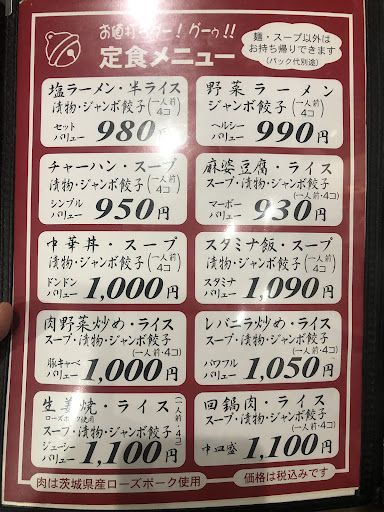 お値打ーー！グーゥ!!
定食メニュー
麺・スープ以外は
お持ち帰りできます
(パック代別途)
塩ラーメン・半ライス
漬物・ジャンボ餃子(一人前 4コ)
セットバリュー 980円
野菜ラーメン
ジャンボ餃子(一人前 4コ)
ヘルシーバリュー 990円
チャーハン・スープ
漬物・ジャンボ餃子(一人前 4コ)
シンプルバリュー 950円
麻婆豆腐・ライス
スープ・漬物・ジャンボ餃子
(一人前・4コ)
マーボーバリュー 930円
中華丼・スープ
漬物・ジャンボ餃子(一人前 4コ)
ドンドンバリュー 1,000円
スタミナ飯・スープ
漬物・ジャンボ餃子(一人前 4コ)
スタミナバリュー 1,090円
肉野菜炒め・ライス
スープ・漬物・ジャンボ餃子
(一人前・4コ)
豚キャベバリュー 1,000円
レバニラ炒め・ライス
スープ・漬物・ジャンボ餃子
(一人前・4コ)
パワフルバリュー 1,050円
生姜焼・ライス
ローズポーク使用
スープ・漬物・ジャンボ餃子(一人前・4コ)
ジューシーバリュー 1,100円
回鍋肉・ライス
スープ・漬物・ジャンボ餃子
(一人前・4コ)
中皿盛 1,100円
肉は茨城県産ローズポーク使用
価格は税込みです